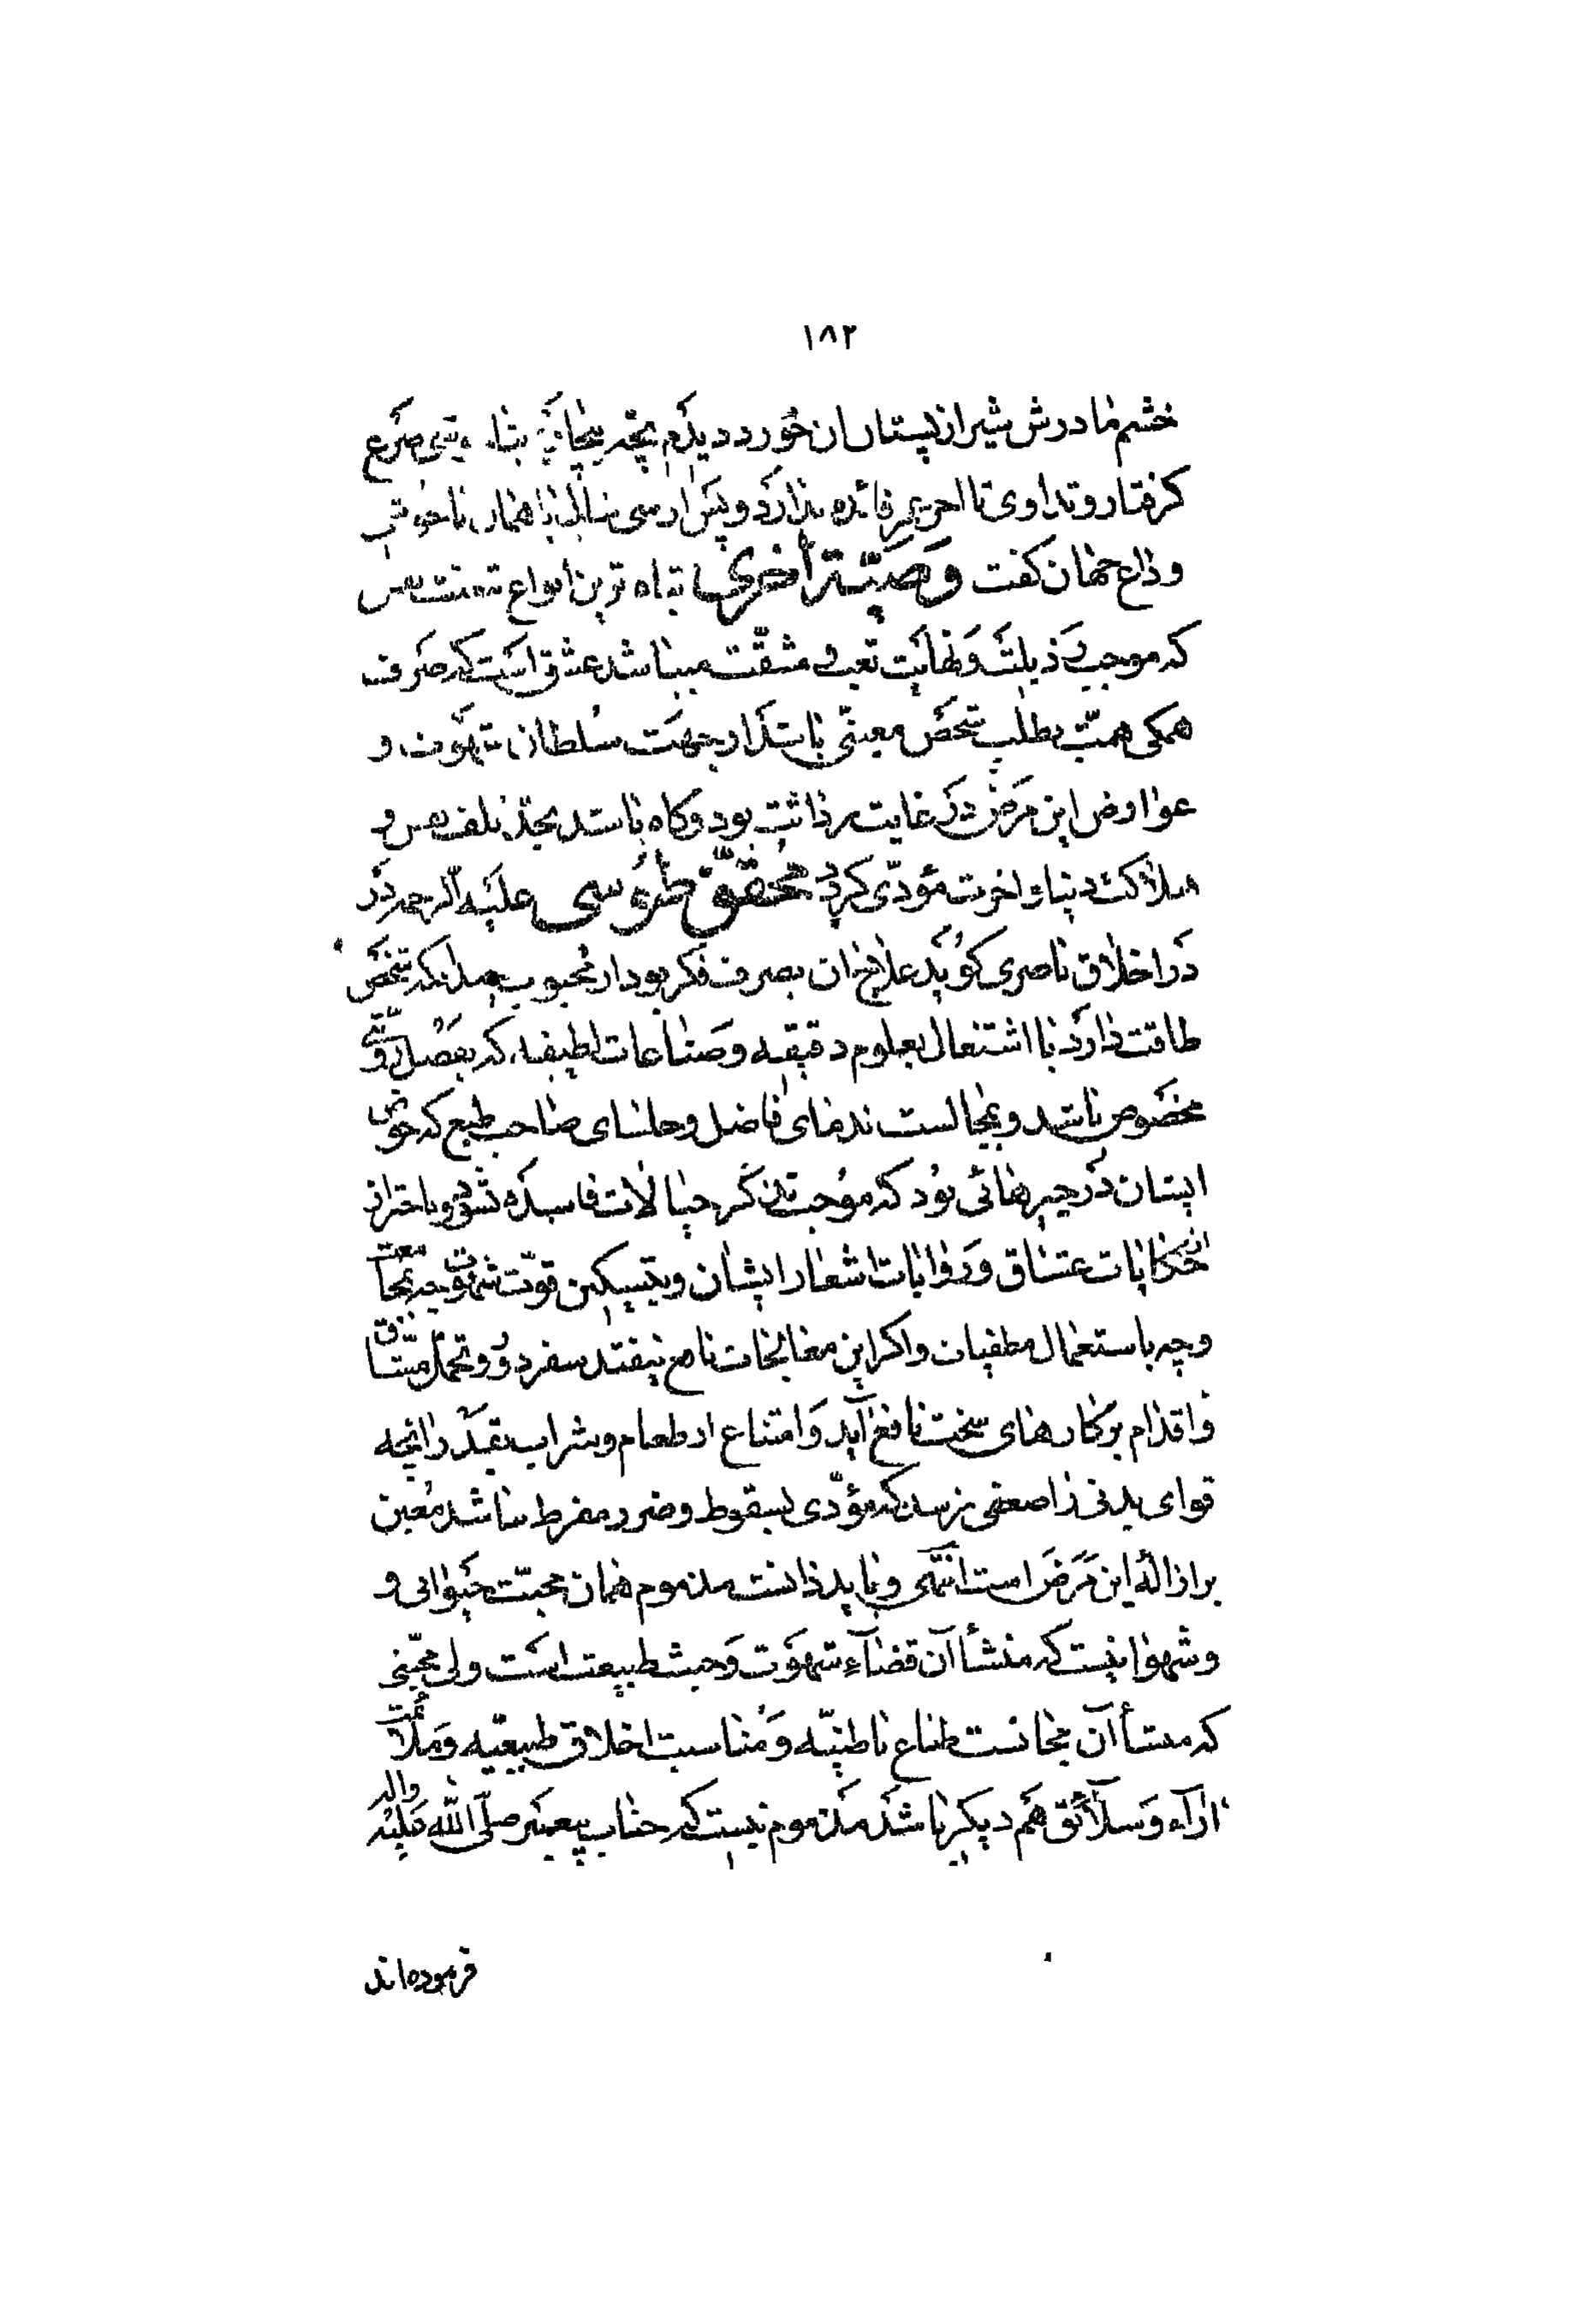 ۱۸۲
خشم مادرش شیر از پستان ان خورد دیدم بچه بیچاره بنا صرع
کرفتار و تداوی تا اخر فائده ندارد و پس از سی سال با همان ناخوشی
وداع جهان کفت وَصیّة اُخری تباه ترین انواع
که موجب ذیلت و نهایت تعب و مشقّت میباشد عشق است که صرف
همکی همّت بطلب شخص معینّی باشد از جهت سُلطان شهوت و
عوارض این مَرَض دَر غایت رذائت بود و کاه باشد بحدّ تلف نفس و
هلاکت دنیا و اخرت مؤدّی کردد مُحقّق طوُسی علیَه الرحمه دَر
دَر اخلاق ناصری کوُید علاج ان بصرف فکر بود از محبوب چندانکه شخص
طاقت دارد با اشتغال بعلوم دقیقه و صَناعات لطیفه که بفضل رویّتی
مخصُوص باشد و بمجالست ندمای فاضل و جلسای صاحب طبع که خوض
ایشان دَر چیرهائی بوُد که موُجب تذکّر خیالات فاسده نشود و باحتراز
از حکایات عشّاق و روایات اشعار ایشان و بتسکین قوّت شهوت چه بمجامعت
و چه باستعمال مطفیات و اکر این معالجات نافع نیفتد سفر دوُر و تحمّل مشّاق
و اقدام بر کارهای سخت نافع آید وَ امتناع از طعام و شراب بقدر انچه
قوای بدنی را ضعفی برسد که مؤدّی بسقوط و ضرر مفرط نباشد مُعین
بر ازالهٔ این مَرَض است انتَهی و باید دانست مذموم همان محبّت حیَوانی و
و شهوانیست که منشأ آن قضآءِ شهَوت وَ حبث طبیعت است ولی محبّتی
که منشأ آن مجانست طباع باطنیّه وَ مُناسبت اخلاق طبیعیّه وَ ملائمت
ارآء وَ سلائق هَم دیکر باشد مذموم نیست که جناب پیغمبر صلّی اللّه علیَه واله
فرموده‌اند